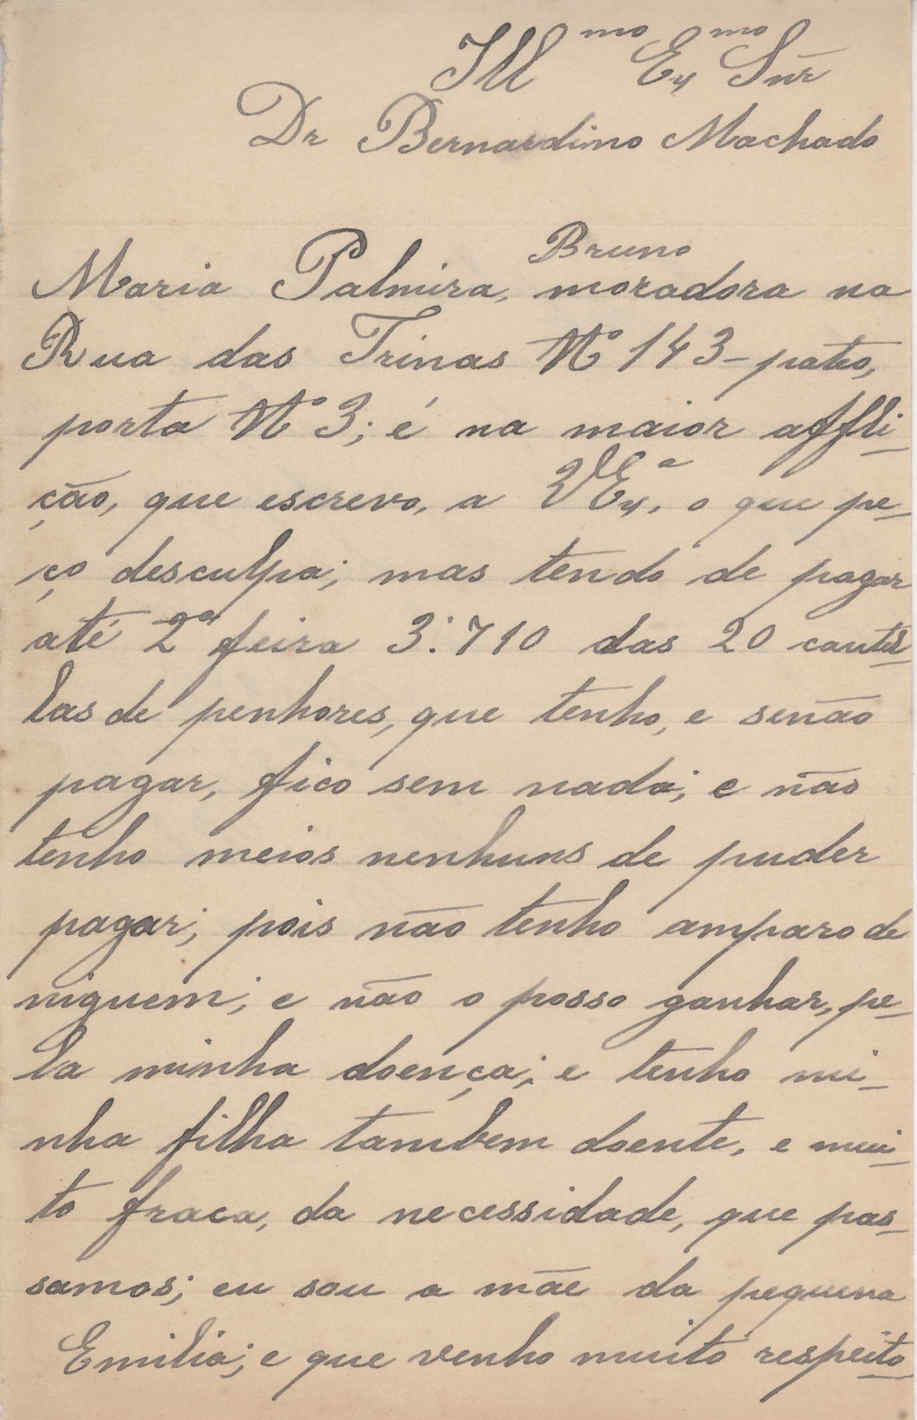 Ill mo Ex mo Snr
Dr Bernardino Machado
Bruno
Maria Palmira, moradora na
Rua das Trinas Nº 143 - pateo,
porta Nº 3; é na maior affli-
ção, que escrevo, a VEx.ª, o que pe-
ço desculpa; mas tendo de pagar
até 2ª feira 3:710 das 20 cautel-
las de penhores, que tenho, e senão
pagar, fico sem nada; e não
tenho meios nenhuns de puder
pagar; pois não tenho amparo de
niguem; e não o posso ganhar, pe-
la minha doença; e tenho mi-
nha filha tambem doente, e mui-
to fraca, da necessidade, que pas-
samos; eu sou a mãe da pequena
Emilia; e que venho muito respeito-